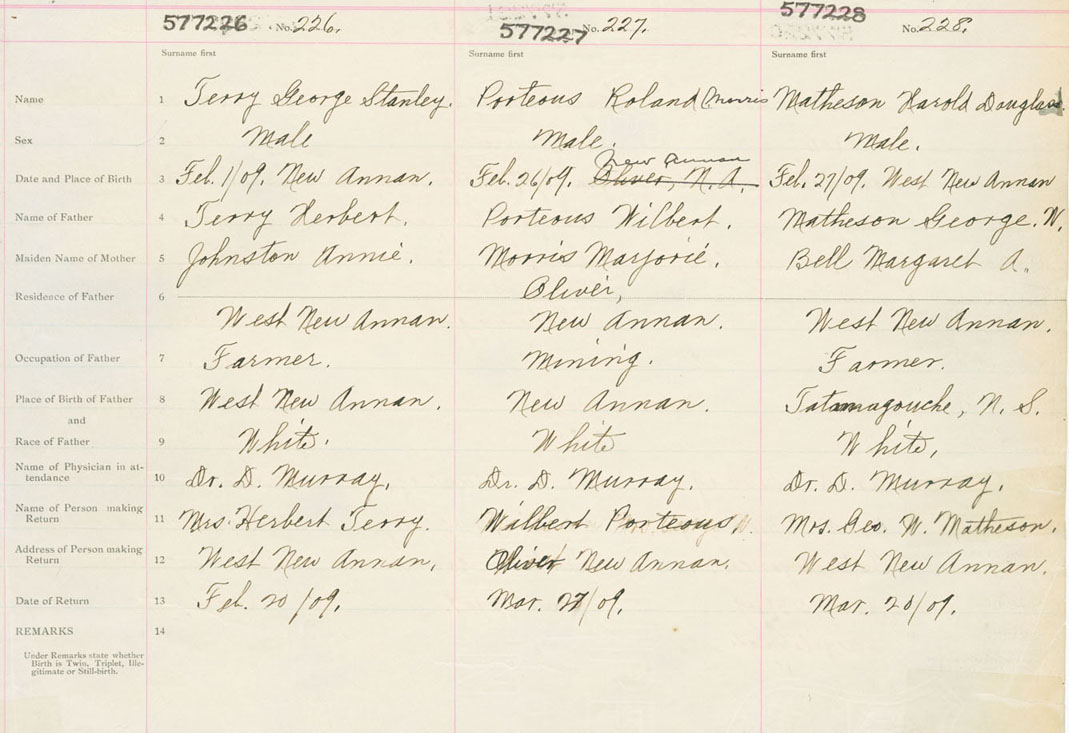 577226 No. 226. 577227 No. 227. 577228 No. 228.
Surname first Surname first Surname first
Name 1 Terry George Stanley. Porteous Roland Morris Matheson Harold Douglas.
Sex 2 Male Male. Male.
New Annan
Date and Place of Birth 3 Feb. 1/09. New Annan. Feb. 26/09. Oliver, N. A. Feb. 27/09. West New Annan
Name of Father 4 Terry Herbert. Porteous Wilbert. Matheson George. W.
Maiden Name of Mother 5 Johnston Annie. Morris Marjorie. Bell Margaret A.
Residence of Father 6 Oliver,
West New Annan. New Annan. West New Annan.
Occupation of Father 7 Farmer. Mining. Farmer.
Place of Birth of Father 8 West New Annan. New Annan. Tatamagouche, N. S.
and
Race of Father 9 White. White White,
Name of Physician in at-
tendance 10 Dr. D. Murray, Dr. D. Murray. Dr. D. Murray.
Name of Person making
Return 11 Mrs. Herbert Terry. Wilbert Porteous Mrs. Geo. W. Matheson.
Address of Person making
Return 12 West New Annan, Oliver New Annan. West New Annan.
Date of Return 13 Feb. 20/09. Mar. /09. Mar. /09.
REMARKS 14
Under Remarks state whether
Birth is Twin, Triplet, Ille-
gitimate or Still-birth.